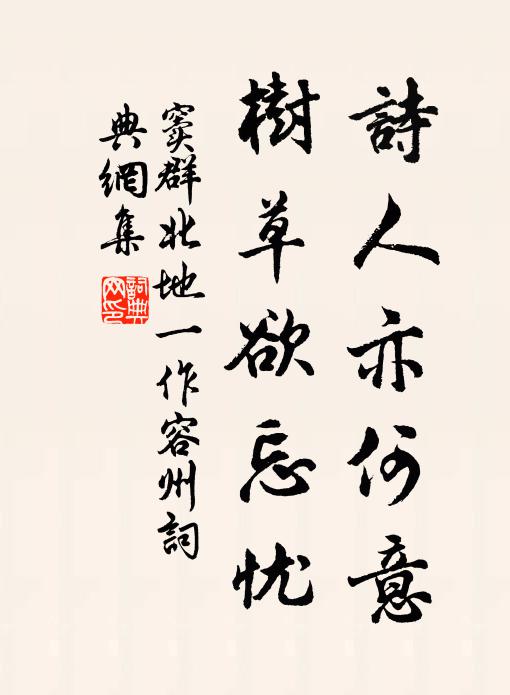 詩人亦何意
樹草欲忘忧
竇群北地一作容州詞
典網集
詞典
网印